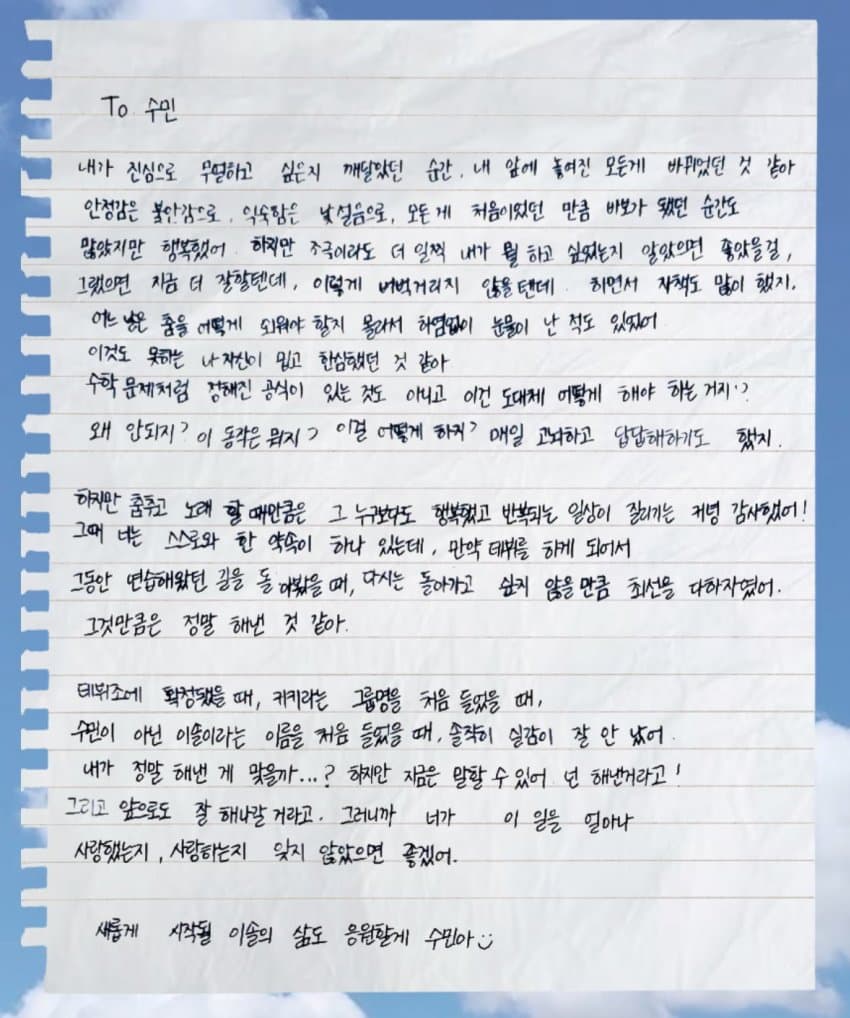 To 수민
내가 진심으로 무얼하고 싶은지 깨달았던 순간, 내 앞에 놓여진 모든게 바뀌었던 것 같아
안정감은 불안감으로, 익숙함은 낯설음으로, 모든 게 처음이었던 만큼 바보가 됐던 순간도
많았지만 행복했어. 하지만 조금이라도 더 일찍 내가 뭘 하고 싶었는지 알았으면 좋았을걸,
그랬으면 지금 더 잘할텐데, 이렇게 버벅거리지 않을텐데. 하면서 자책도 많이 했지.
어느 날은 춤을 어떻게 외워야 할지 몰라서 하염없이 눈물이 난 적도 있었어
이것도 못하는 나 자신이 밉고 한심했던 것 같아
수학 문제처럼 정해진 공식이 있는 것도 아니고 이건 도대체 어떻게 해야 하는 거지?
왜 안되지? 이 동작은 뭐지? 이걸 어떻게 하지? 매일 고뇌하고 답답해하기도 했지.
하지만 춤추고 노래 할 때만큼은 그 누구보다도 행복했고 반복되는 일상이 질리기는 커녕 감사했어!
그때 너는 스스로와 한 약속이 하나 있는데, 만약 데뷔를 하게 되어서
그동안 연습해왔던 길을 돌아봤을 때, 다시는 돌아가고 싶지 않을 만큼 최선을 다하자였어.
그것만큼은 정말 해낸 것 같아.
데뷔조에 확정됐을 때, 키키라는 그룹명을 처음 들었을 때,
수민이 아닌 이솔이라는 이름을 처음 들었을 때, 솔직히 실감이 잘 안 났어.
내가 정말 해낸 게 맞을까...? 하지만 지금은 말할 수 있어 넌 해낸거라고!
그리고 앞으로도 잘 해나갈 거라고. 그러니까 너가 이 일을 얼마나
사랑했는지, 사랑하는지 잊지 않았으면 좋겠어.
새롭게 시작될 이솔의 삶도 응원할게 수민아